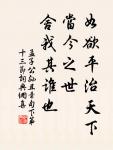 如欲平治天下
當今之世
舍我其誰也
孟子公孫丑章句下第
十三節詞典網書